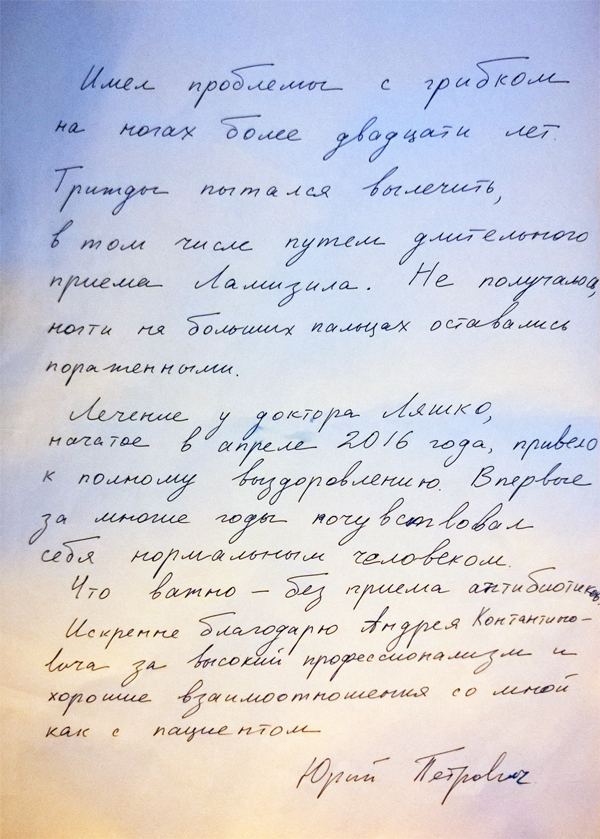 Имел проблемы с грибком
на ногах более двадцати лет.
Трижды пытался вылечить,
в том числе путем длительного
приема Ламизила. Не получалось,
ногти на больших пальцах оставались
пораженными.
Лечение у доктора Ляшко,
начатое в апреле 2016 года, привело
к полному выздоровлению. Впервые
за многие годы почувствовал
себя нормальным человеком.
Что важно – без приема антибиотиков.
Искренне благодарю Андрея Контантино-
вича за высокий профессионализм и
хорошие взаимоотношения со мной
как с пациентом
Юрий Петрович